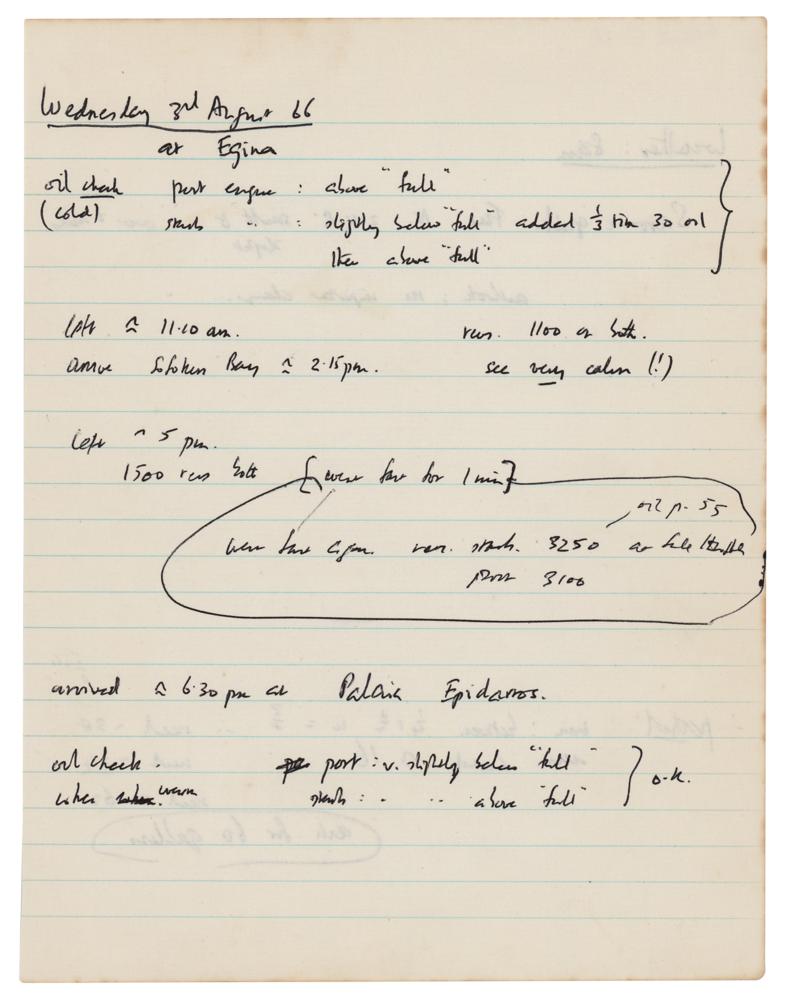 Wednesday 3rd August 66
at Egina
oil check port engine : above "full"
(cold) starb " : slightly below "full" added 1/3 tin 30 oil
then above "full"
left ≃ 11.10 am. revs. 1100 on both.
arrive Bay ≃ 2.15 pm. see very calm (!)
left ~ 5 pm.
1500 revs both {went fast for 1 min}
oil p. 55
went fast again. rev. starb. 3250 at full throttle
port 3100
arrived ≃ 6.30 pm at Palaia Epidavros.
oil check. port : v. slightly below "full"
when warm starb : " " above "full" } O.K.